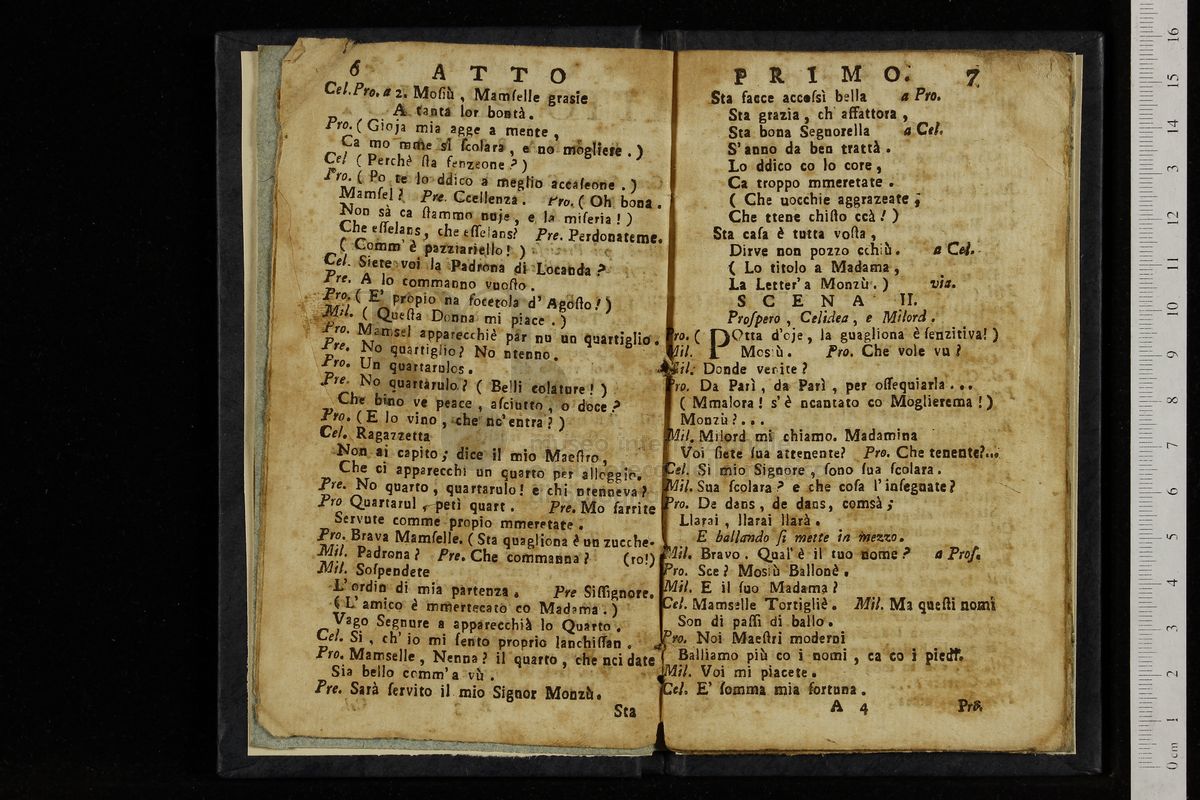 6 ATTO
Cel. Pro. a 2. Mosiù, Mamſelle grasie
A tanta lor bontà.
Pro. (Gioja mia agge a mente,
Ca mo mme si ſcolara, e no mogliere.)
Cel (Perchè ſta fenzeone?)
Pro. (Po te lo ddico a meglio accaſeone.)
Mamſel? Pre. Ccellenza. Pro. (Oh bona.
Non sà ca ſtammo nuje, e la miſeria!)
Che eſſelans, che eſſelans? Pre. Perdonateme.
(Comm' è pazziariello!)
Cel. Siete voi la Padrona di Locanda?
Pre. A lo commanno vuoſto.
Pro. (E' propio na focetola d' Agoſto!)
Mil. (Queſta Donna mi piace.)
Pro. Mamsel apparecchiè par nu un quartiglio.
Pre. No quartiglio? No ntenno.
Pro. Un quartarulos.
Pre. No quartarulo? (Belli colature!)
Che bino ve peace, aſciutto, o doce?
Pro. (E lo vino, che nc'entra?)
Cel. Ragazzetta
Non ai capito; dice il mio Maeſtro,
Che ci apparecchi un quarto per alloggio.
Pre. No quarto, quartarulo! e chi ntenneva?
Pro Quartarul, petì quart. Pre. Mo ſarrite
Servute comme propio mmeretate.
Pro. Brava Mamſelle. (Sta quagliona è un zucche-
Mil. Padrona? Pre. Che commanna? (ro!)
Mil. Soſpendete
L' ordin di mia partenza. Pre Siſſignore.
(L' amico è mmertecato co Madama.)
Vago Segnure a apparecchià lo Quarto.
Cel. Si, ch' io mi ſento proprio lanchiſſan.
Pro. Mamselle, Nenna? il quarto, che nci date
Sia bello comm' a vù.
Pre. Sarà ſervito il mio Signor Monzù.
Sta
PRIMO. 7
Sta facce accossì bella a Pro.
Sta grazia, ch' affattora,
Sta bona Segnorella a Cel.
S' anno da ben trattà.
Lo ddico co lo core,
Ca troppo mmeretate.
(Che uocchie aggrazeate;
Che ttene chiſto ccà!)
Sta caſa è tutta voſta,
Dirve non pozzo cchiù. a Cel.
(Lo titolo a Madama,
La Letter' a Monzù.) via.
SCENA II.
Proſpero, Celidea, e Milord.
Pro. (POtta d'oje, la guagliona è ſenzitiva!)
Mil. Mosiù. Pro. Che vole vu?
Mil. Donde venite?
Pro. Da Parì, da Parì, per oſſequiarla...
(Mmalora! s' è ncantato co Moglierema!)
Monzù?...
Mil. Milord mi chiamo. Madamina
Voi ſiete ſua attenente? Pro. Che tenente?...
Cel. Si mio Signore, ſono ſua ſcolara.
Mil. Sua ſcolara? e che coſa l' inſegnate?
Pro. De dans, de dans, comsà;
Llarai, llarai llarà.
E ballando ſi mette in mezzo.
Mil. Bravo. Qual' è il tuo nome? a Proſ.
Pro. Sce? Mosiù Ballonè.
Mil. E il ſuo Madama?
Cel. Mamselle Tortigliè. Mil. Ma queſti nomi
Son di paſſi di ballo.
Pro. Noi Maeſtri moderni
Balliamo più co i nomi, ca co i piedi.
Mil. Voi mi piacete.
Cel. E' ſomma mia fortuna.
A 4 Pro.